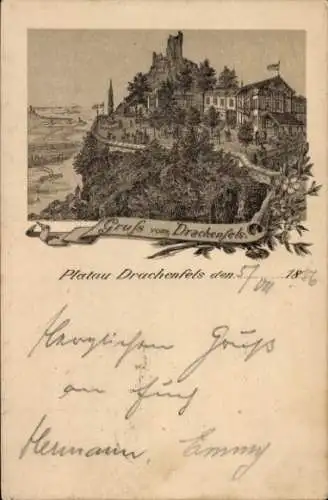 Gruss vom Drachenfels.
Platau Drachenfels den 5/VII 1886
Herzlichen Gruß
an Euch
Hermann, Emmy